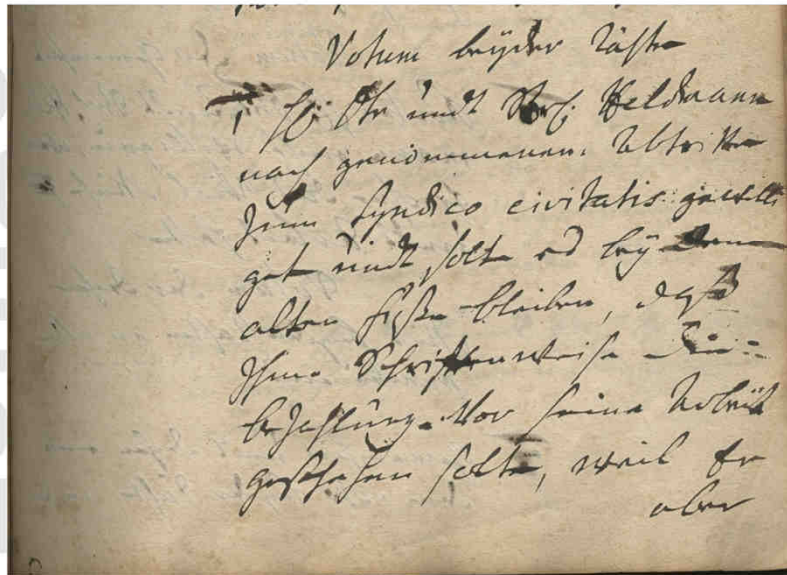 Votum beyder Räthe
H. undt Feldmann
nach genommenen Abtritte
zum Syndico civitatis gewilli
get undt solte es bey dem
alten fuße bleiben, daß
Ihme Schriftenweise die
bezahlung vor seine Arbeit
geschehen solte, weil Er
aber